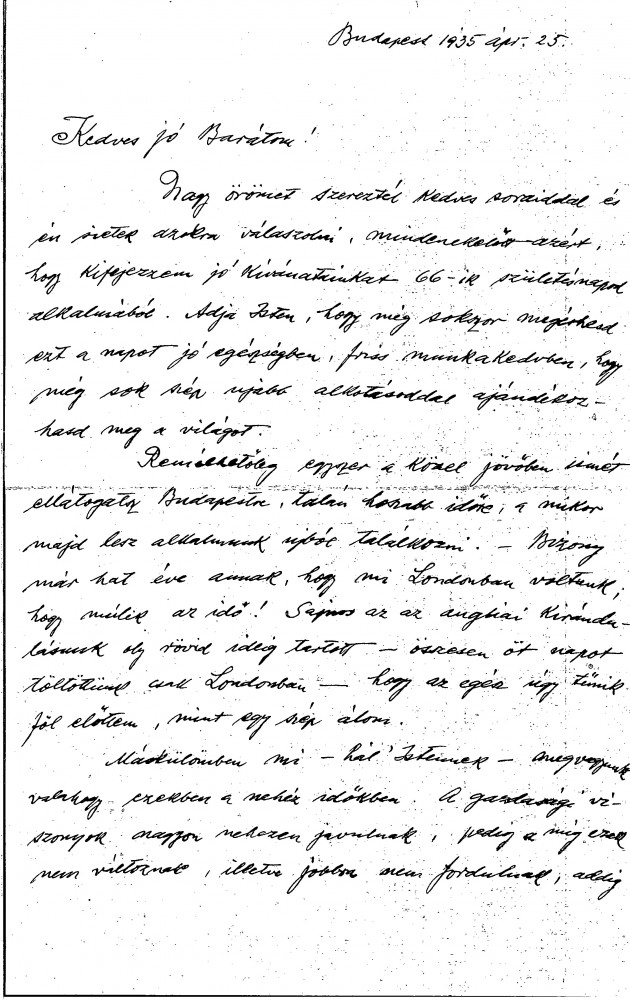 Budapest 1935 ápr. 25.
Kedves jó Barátom!
Nagy örömet szereztél kedves soraiddal és
én sietek azokra válaszolni, mindenekelőtt azért,
hogy kifejezzem jó kívánatainkat 66-ik születésnapod
alkalmából. Adja Isten, hogy még sokszor megérhesd
ezt a napot jó egészségben, friss munkakedvben, hogy
még sok szép ujabb alkotásoddal ajándékoz-
hasd meg a világot.
Remélhetőleg egyszer a közel jövőben ismét
ellátogatsz Budapestre, talán hosszabb időre, a mikor
majd lesz alkalmunk ujból találkozni. – Bizony
már hat éve annak, hogy mi Londonban voltunk,
hogy múlik az idő! Sajnos az az angliai kirándu-
lásunk oly rövid ideig tartott – összesen öt napot
töltöttünk csak Londonban – hogy az egész úgy tűnik
föl előttem, mint egy szép álom.
Máskülömben mi – hál' Istennek – megvagyunk
valahogy ezekben a nehéz időkben. A gazdasági vi-
szonyok nagyon nehezen javulnak, pedig a míg ezek
nem változnak, illetve jobbra nem fordulnak, addig